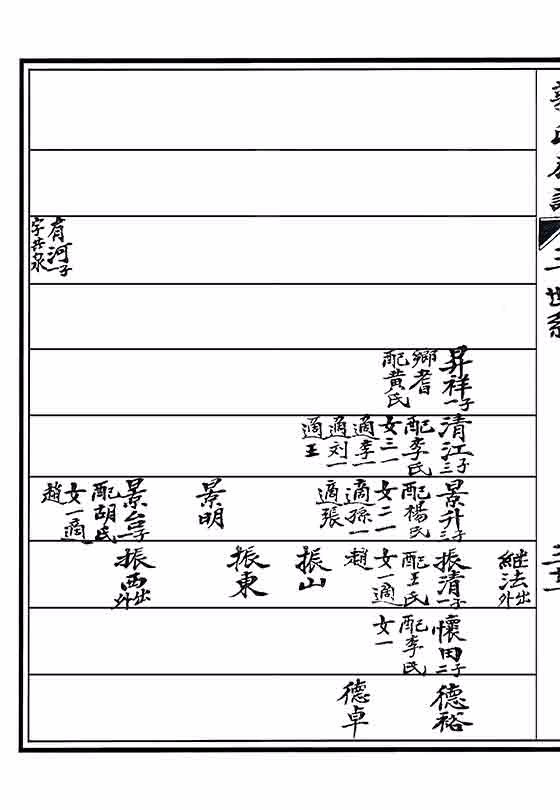 世系
三十一
昇祥一子
鄉耆
配黃氏
清江三子
配李氏
女三一
適李一
適刘一
適王
景升三子
配楊氏
女二一
適孫一
適張
景明
景台一子
配胡氏
女一適
趙
继法出外
振清一子
配王氏
女一適
趙
振山
振東
振西出外
懷田二子
配李氏
女一
德裕
德卓
有河一子
字其泉